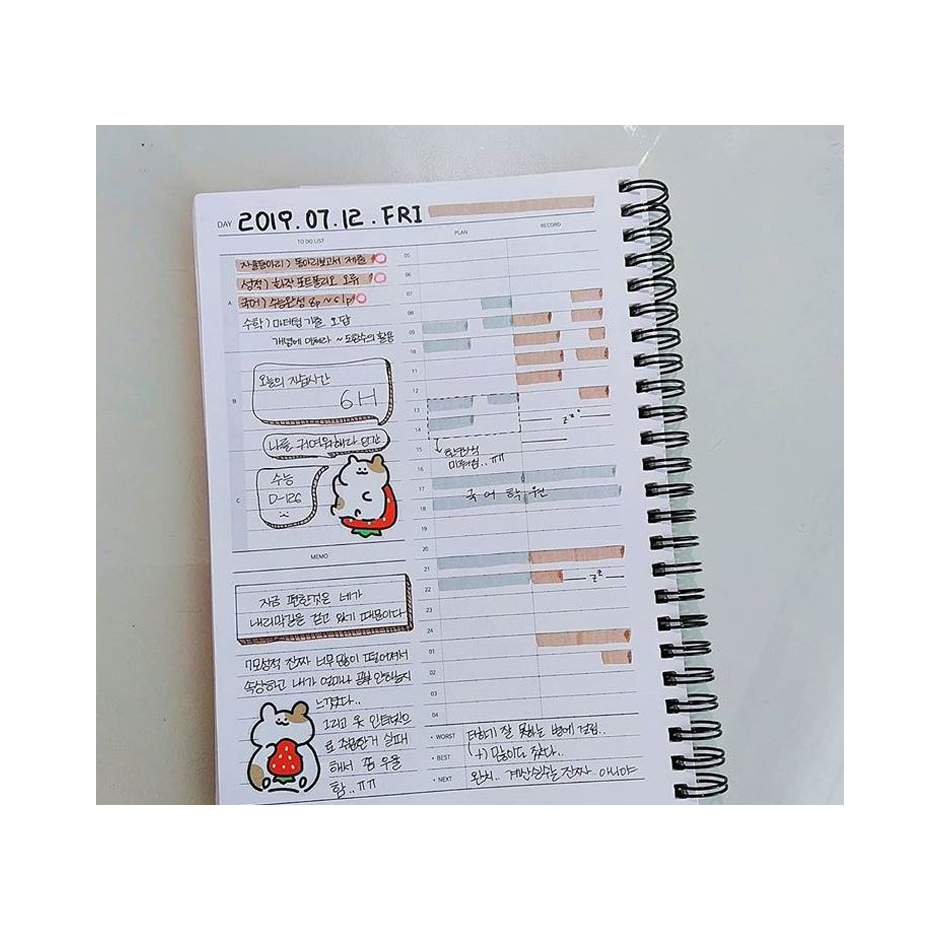 DAY 2019.07.12.FRI
TO DO LIST
자율동아리) 동아리보고서 제출
성적) 화작 포트폴리오 오류
A
국어) 수능완성 8p ~ 61p
수학) 마더텅 기출 오답
개념에 더해라 ~ 도함수의 활용
B
오늘의 자습시간
6H
나를 귀여워해라 인간
C
수능
D-126
MEMO
지금 편한것은 네가
내리막길을 걷고 있기 때문이다
7모성적 진짜 너무많이 떨어져서
속상하고 내가 얼마나 공부안하는지
느꼈다..
그리고 옷 인터넷으
로 주문한거 실패
해서 좀 우울
함..ㅠㅠ
PLAN
RECORD
05
06
07
08
09
10
11
12
13
zzz
14
15
마더텅..ㅠㅠ
16
17
국어학원
18
20
21
zz
22
24
01
02
03
04
WORST 더하기 잘 못하는 병에 걸림..
BEST (+) 많이도 줬다..
NEXT 완치.. 계산실수는 진짜 아니야